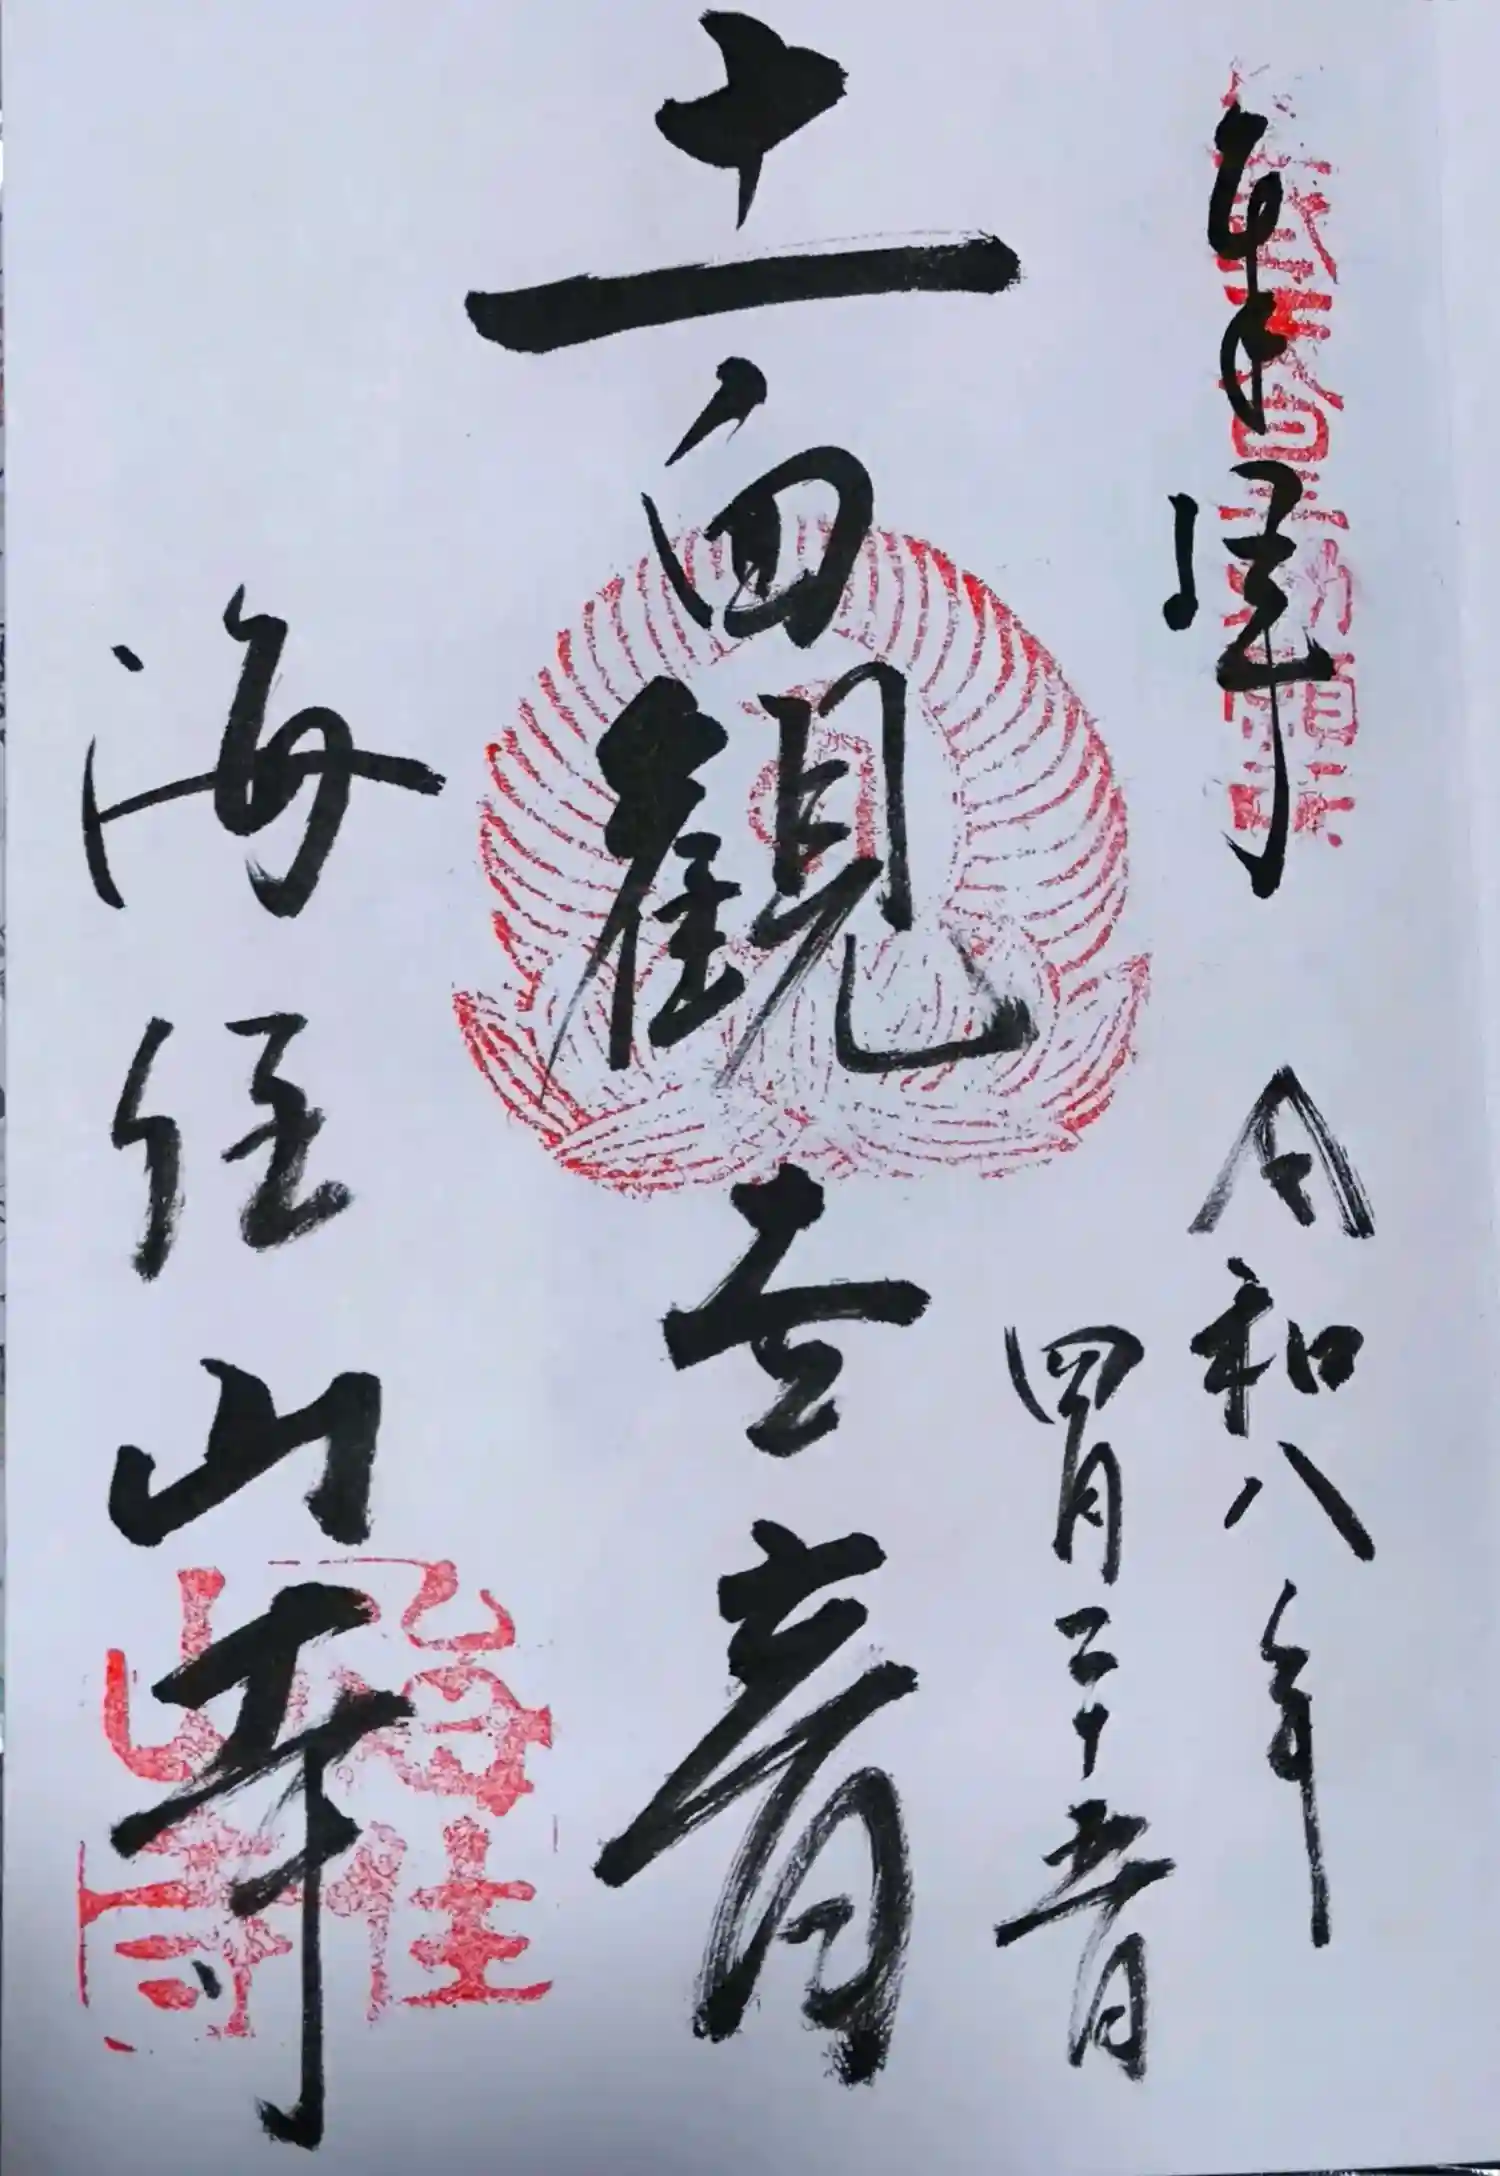 奉拝 令和八年
四月二十五日
十一面観世音
海住山寺
海住
山寺